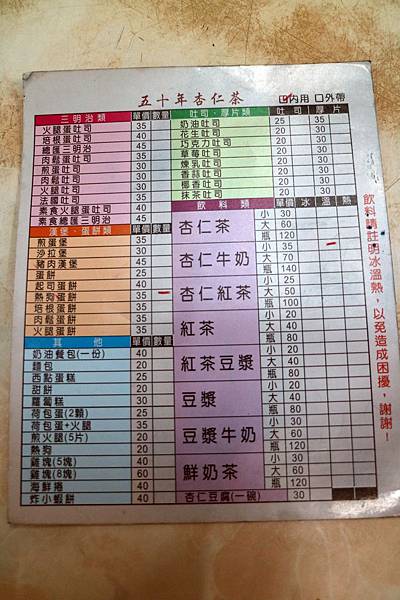 五十年杏仁茶 ☑內用 口外帶
三明治類 單價 數量
火腿蛋吐司 35
培根蛋吐司 40
總匯三明治 45
肉鬆蛋吐司 35
煎蛋吐司 30
肉鬆吐司 30
火腿吐司 30
法國吐司 35
素食火腿蛋吐司 40
素食總匯三明治 45
漢堡、蛋餅類 單價 數量
煎蛋堡 35
沙拉堡 30
豬肉漢堡 45
蛋餅 25
起司蛋餅 35
熱狗蛋餅 35
培根蛋餅 35
肉鬆蛋餅 35
火腿蛋餅 35
其他 單價 數量
奶油餐包(一份) 40
麵包 20
西點蛋糕 25
甜餅 20
蘿蔔糕 30
荷包蛋(2顆) 25
荷包蛋+火腿 35
煎火腿(5片) 40
熱狗 20
雞塊(5塊) 40
雞塊(8塊) 60
海鮮捲 40
炸小蝦餅 40
吐司、厚片類 吐司 厚片
奶油吐司 25 35
花生吐司 20 30
巧克力吐司 20 30
草莓吐司 20 30
煉乳吐司 20 30
香蒜吐司 20 30
椰香吐司 20 30
抹茶吐司 20 30
飲料類 單價 冰 溫 熱
杏仁茶 小 30
大 60
瓶 120
杏仁牛奶 小 35
大 70
瓶 140
杏仁紅茶 小 25
大 50
瓶 100
紅茶 小 20
大 40
瓶 80
紅茶豆漿 小 20
大 40
瓶 80
豆漿 小 20
大 40
瓶 80
豆漿牛奶 小 30
大 60
瓶 120
鮮奶茶 小 30
大 60
瓶 120
杏仁豆腐(一碗) 30
飲料請註明冰溫熱，以免造成困擾，謝謝！